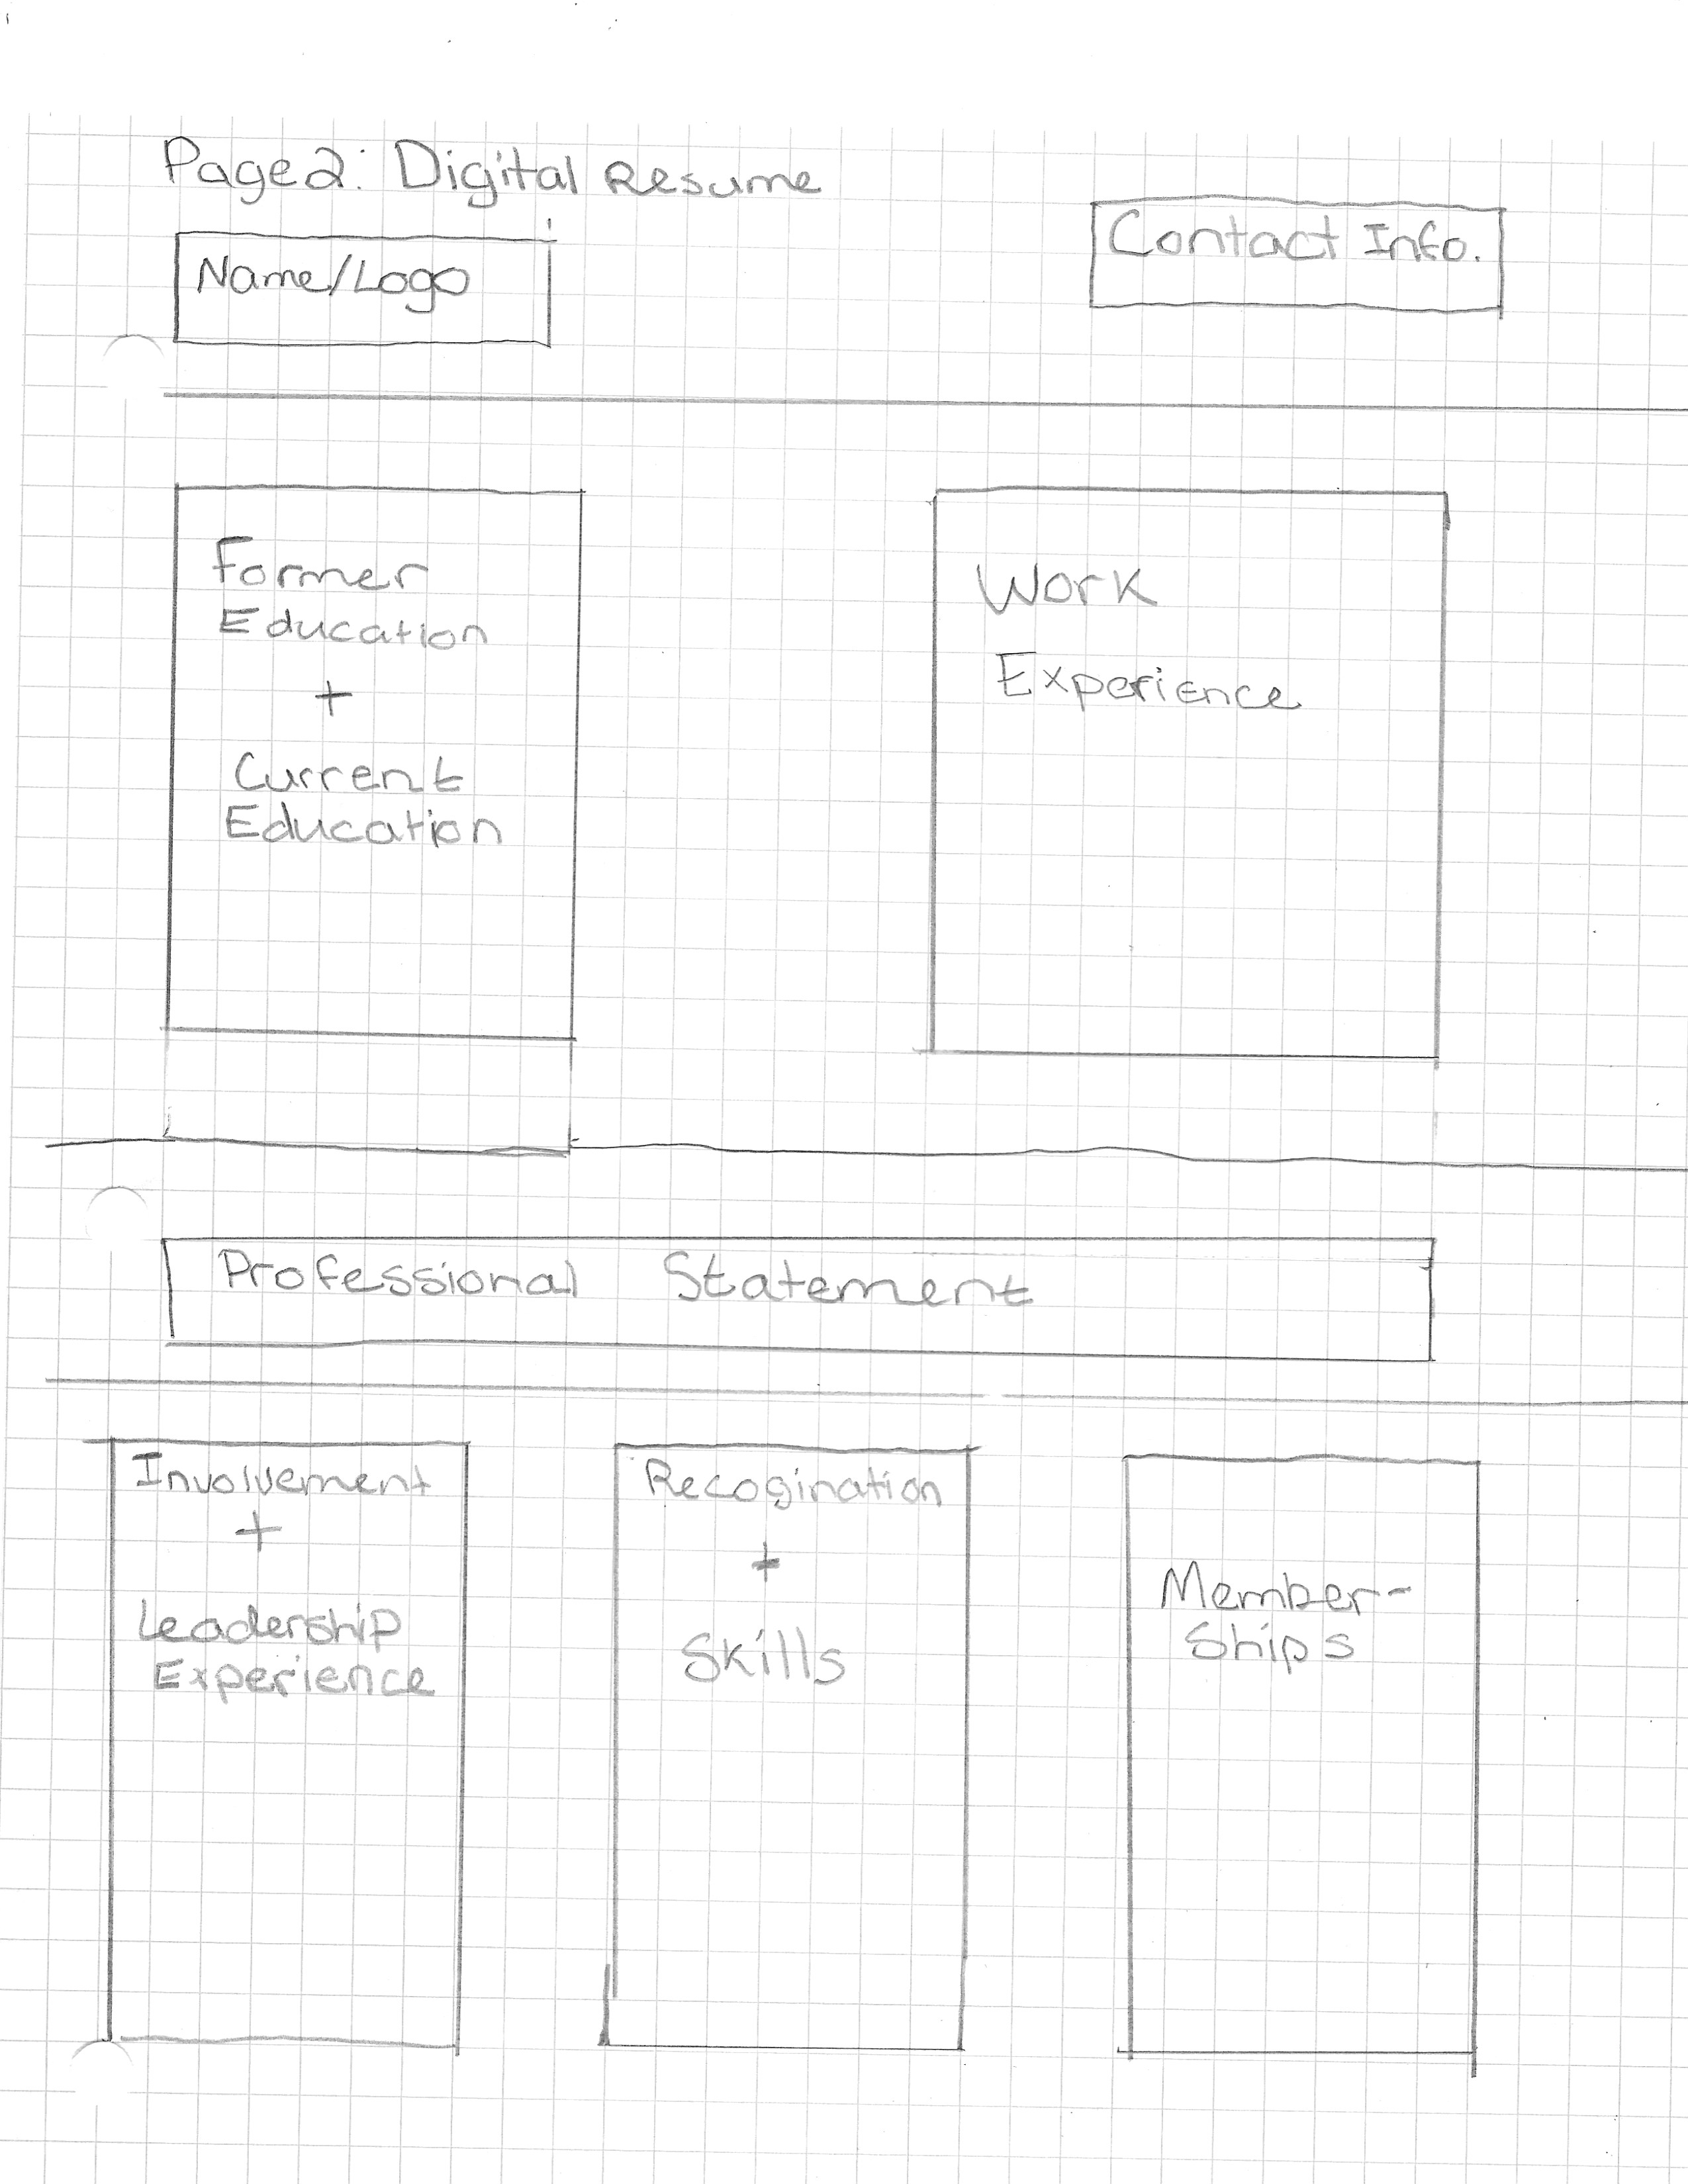 Page 2: Digital Resume
Name/Logo
Contact Info.
Former
Education
+
Current
Education
Work
Experience
Professional Statement
Involvement
+
Leadership
Experience
Recogination
+
Skills
Member-
Ships